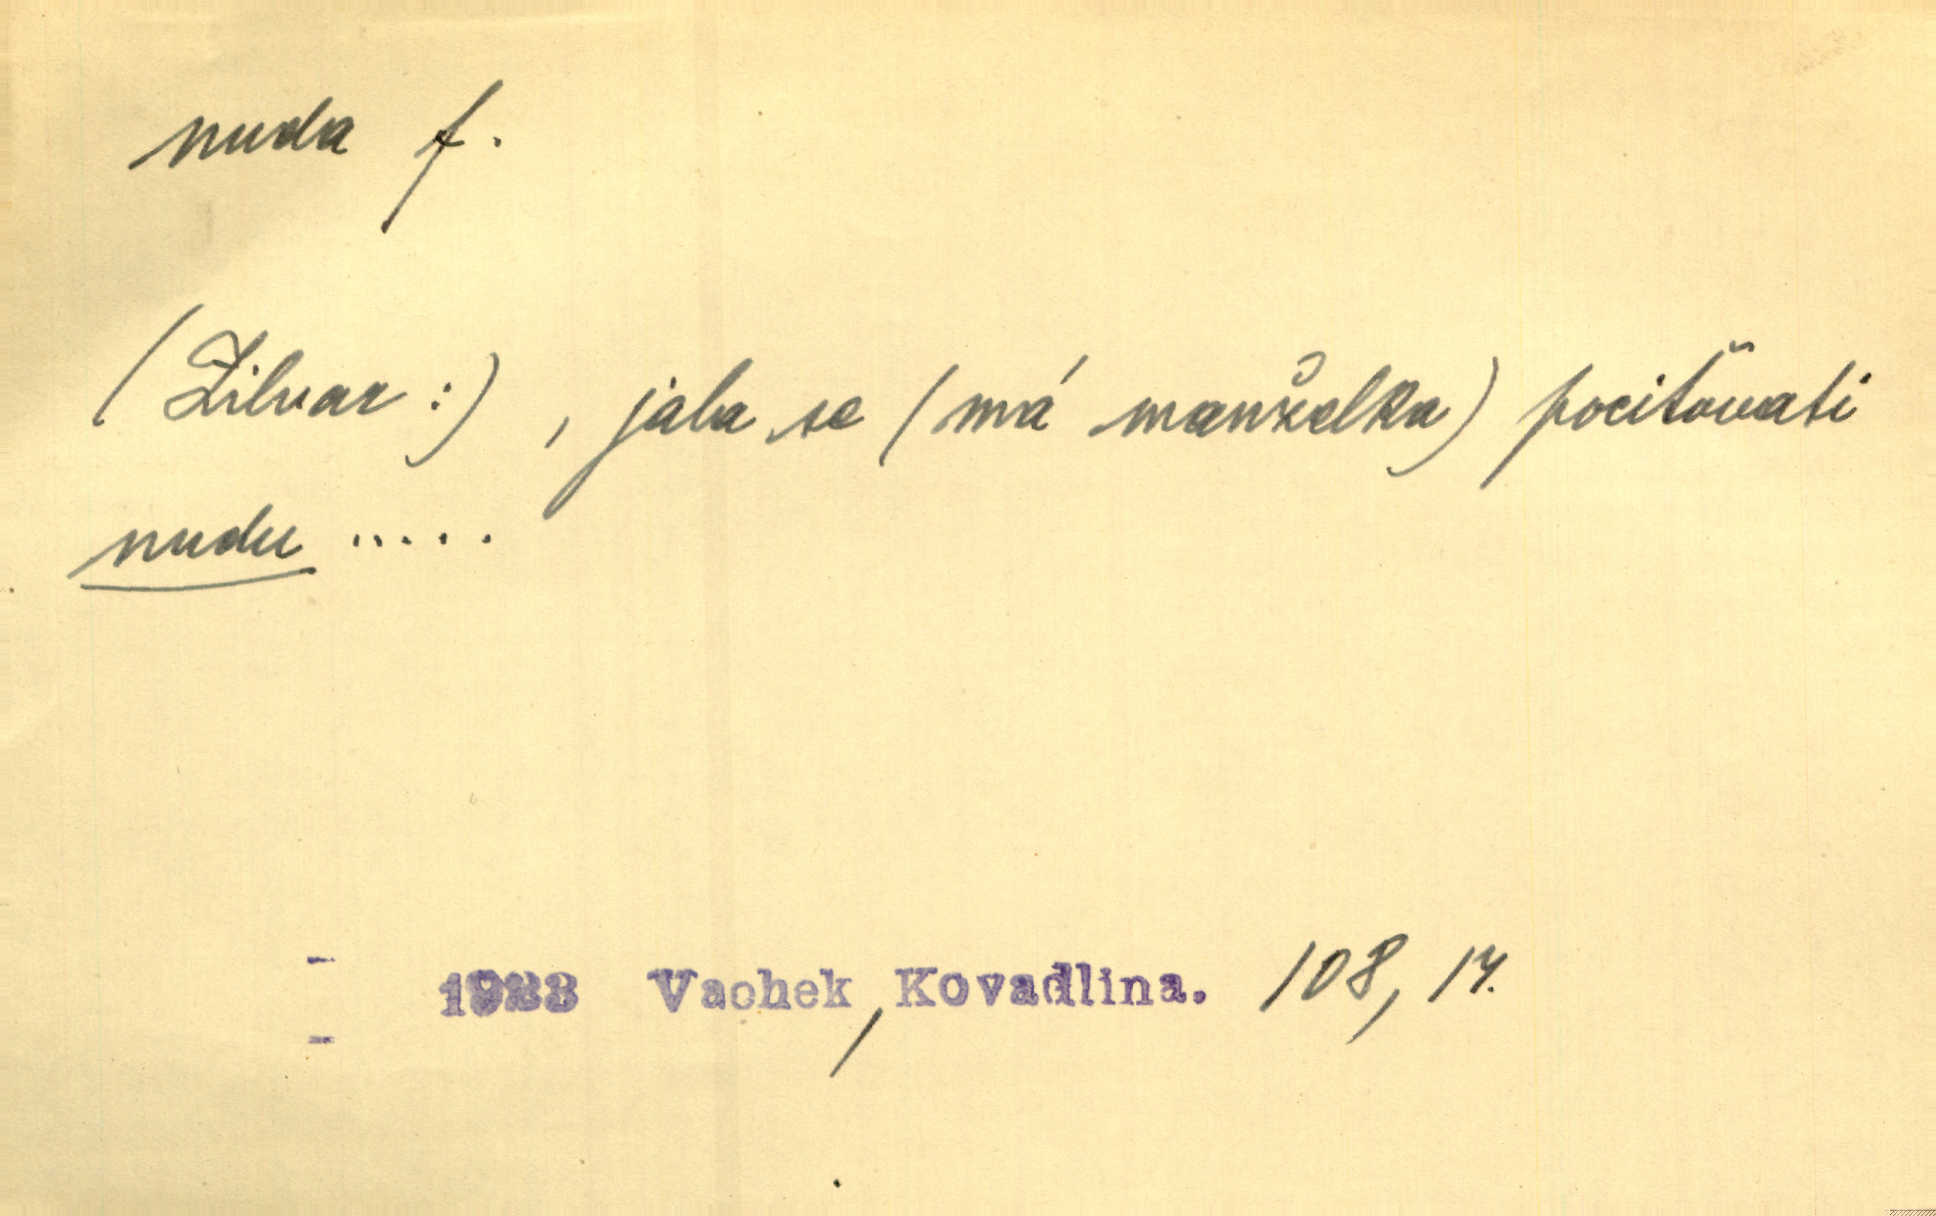 nuda f.
(Žilvar :), jala se (má manželka) pociťovati
nudu .....
1933 Vachek, Kovadlina. 108, 14.